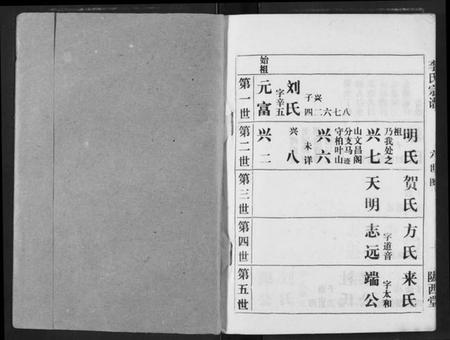 李氏宗谱
陇西堂
始祖
第一世
元富
字辛五
刘氏
子
兴
四二六七八
第二世
兴二
兴八
未详
兴六
守柏叶山
分支马迹
山文昌阁
兴七
乃我处之
祖
明氏
第三世
天明
贺氏
第四世
志远
字道音
方氏
第五世
端公
字太和
来氏